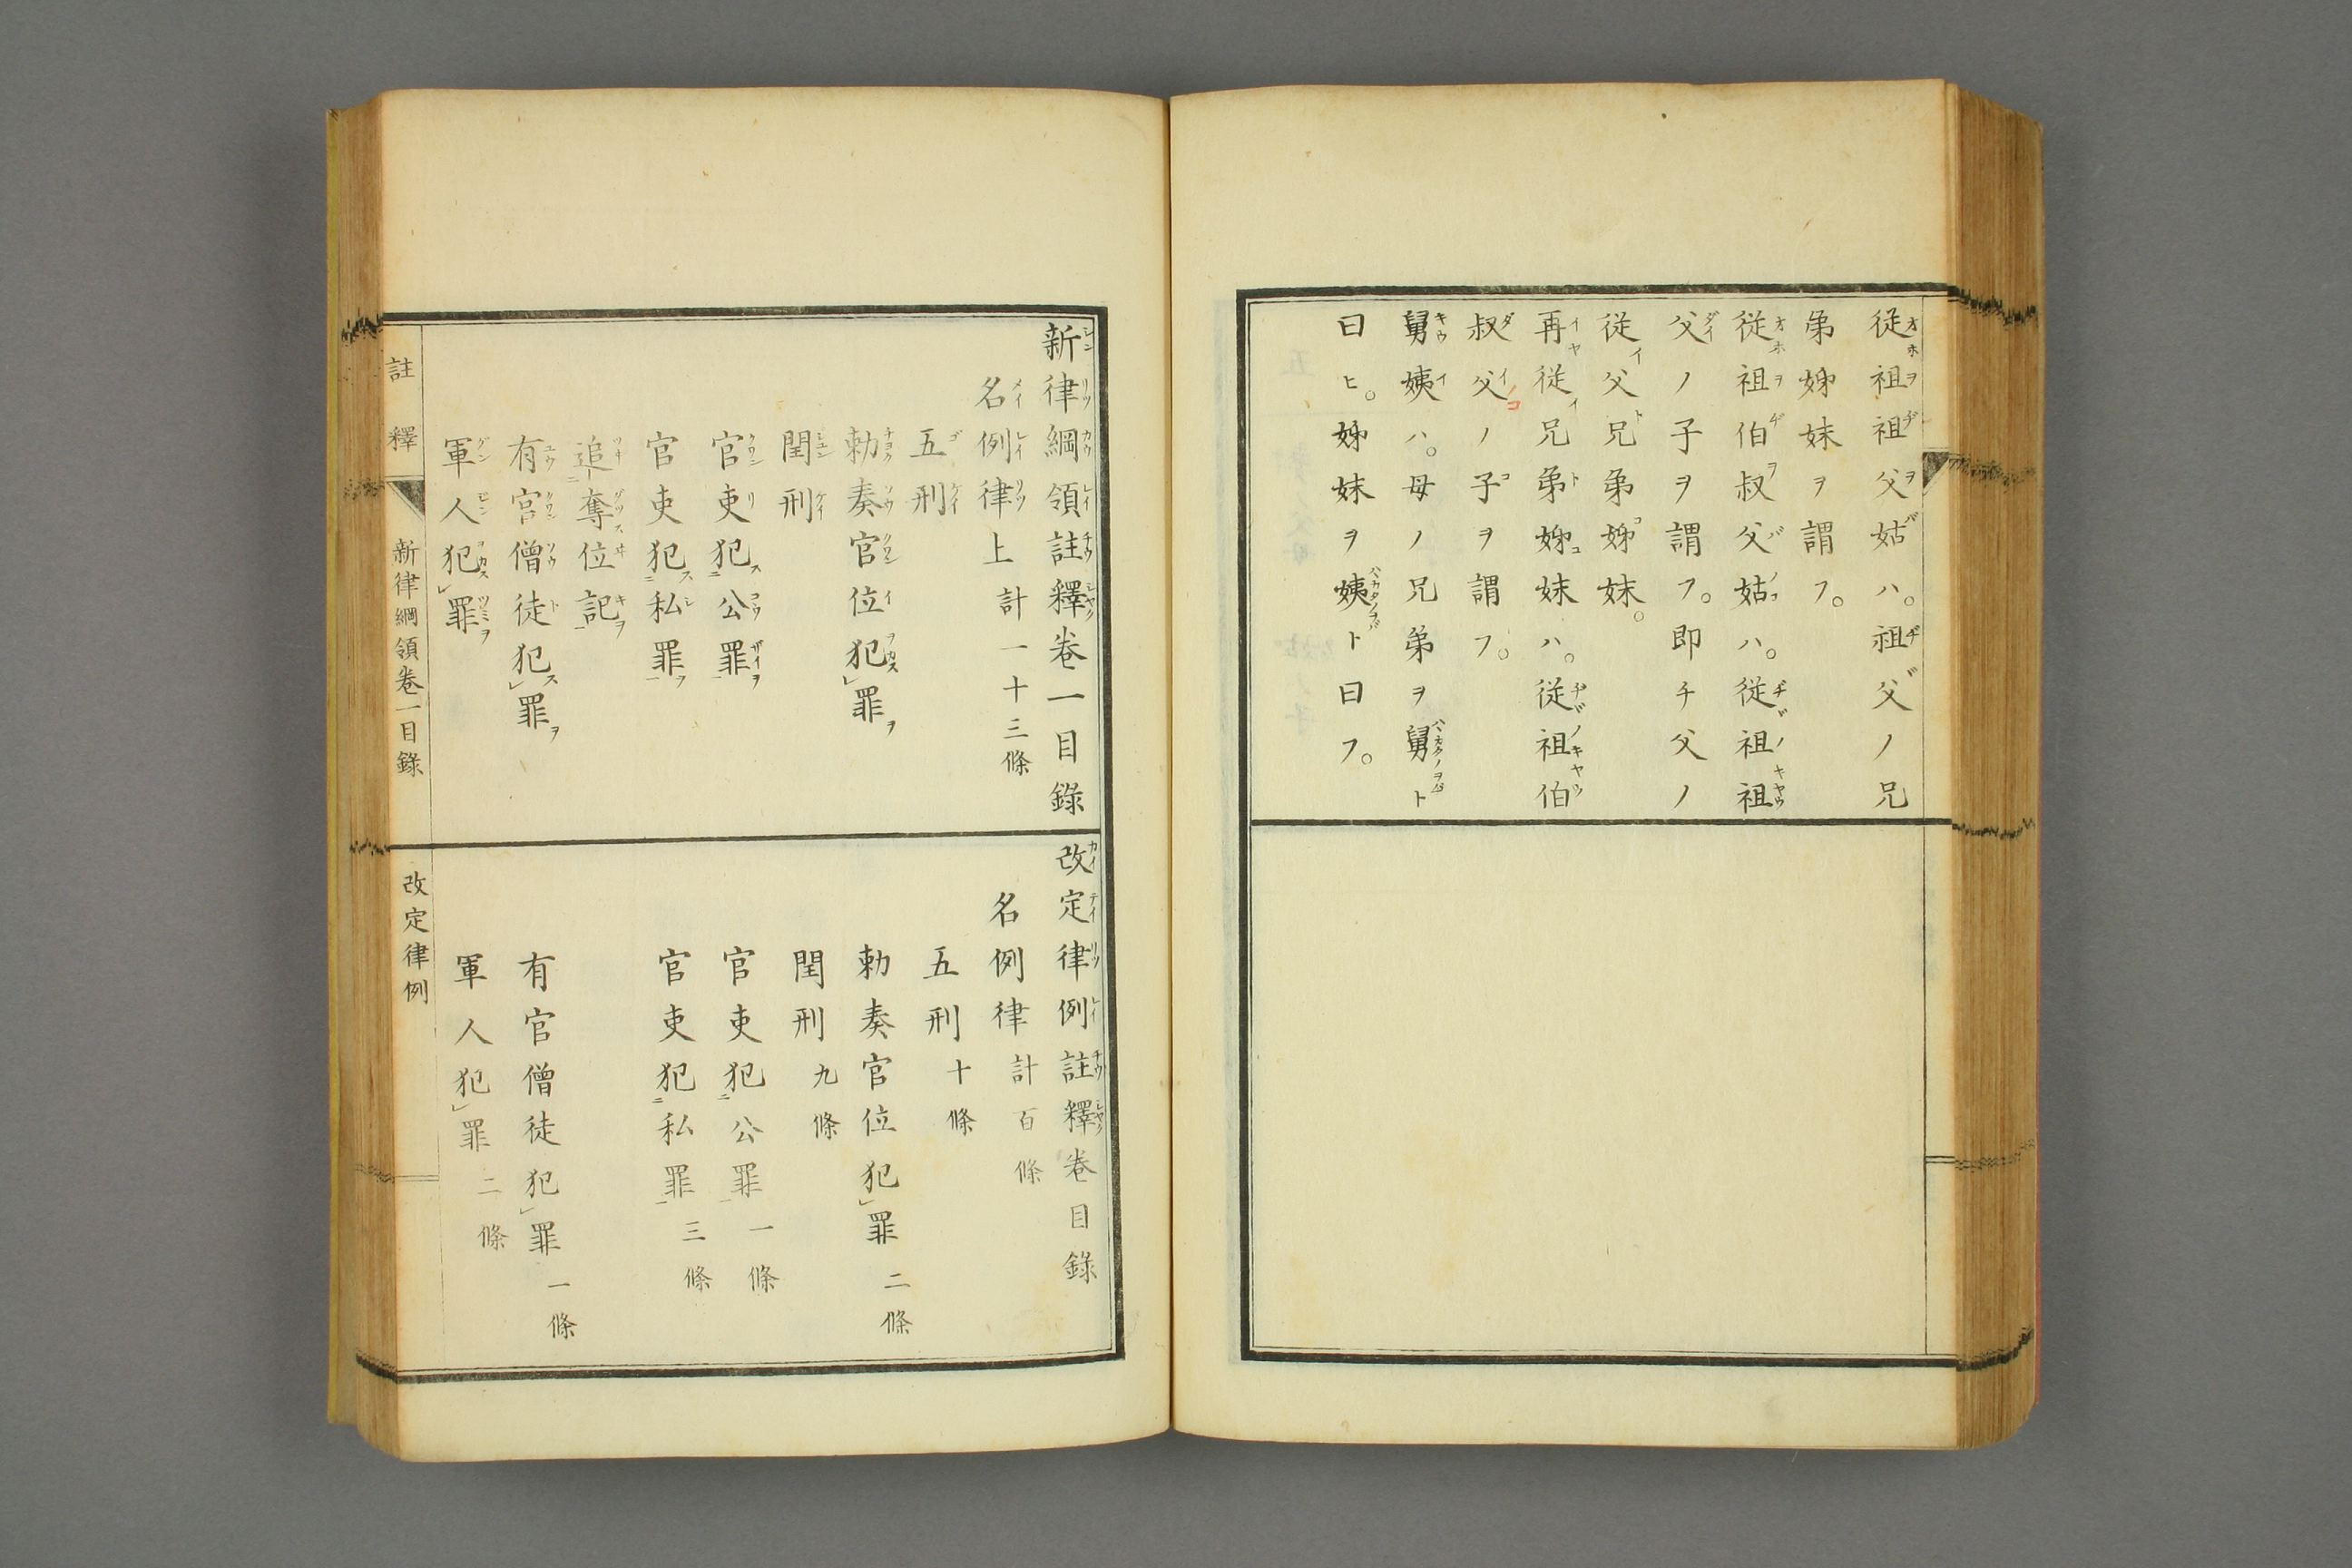 従祖祖父姑ハ。祖父ノ兄
弟姊妹ヲ謂フ。
従祖伯叔父姑ハ。従祖祖
父ノ子ヲ謂フ。即チ父ノ
従父兄弟姊妹。
再従兄弟姊妹ハ。従祖伯
叔父ノ子ヲ謂フ。
舅姨ハ。母ノ兄弟ヲ舅ト
曰ヒ。姊妹ヲ姨ト曰フ。
新律綱領註釋卷一目錄
名例律上 計一十三條
五刑
勅奏官位犯罪
閏刑
官吏犯公罪
官吏犯私罪
追奪位記
有官僧徒犯罪
軍人犯罪
改定律例註釋卷目錄
名例律 計百條
五刑 十條
勅奏官位犯罪 二條
閏刑 九條
官吏犯公罪 一條
官吏犯私罪 三條
有官僧徒犯罪 一條
軍人犯罪 二條
註釋 新律綱領卷一目錄 改定律例